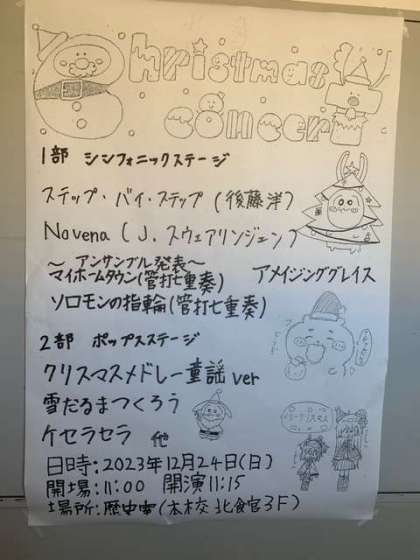 Christmas
concert
1部 シンフォニックステージ
ステップ・バイ・ステップ (後藤洋)
Novena (J.スウェアリンジェン)
～アンサンブル発表～
マイホームタウン(管打七重奏)
アメイジンググレイス
ソロモンの指輪(管打七重奏)
2部 ポップスステージ
クリスマスメドレー童謡ver
雪だるまつくろう
ケセラセラ 他
メリークリスマス
日時:2023年12月24日(日)
開場:11:00 開演11:15
場所:歴史室(本校 北館3F)